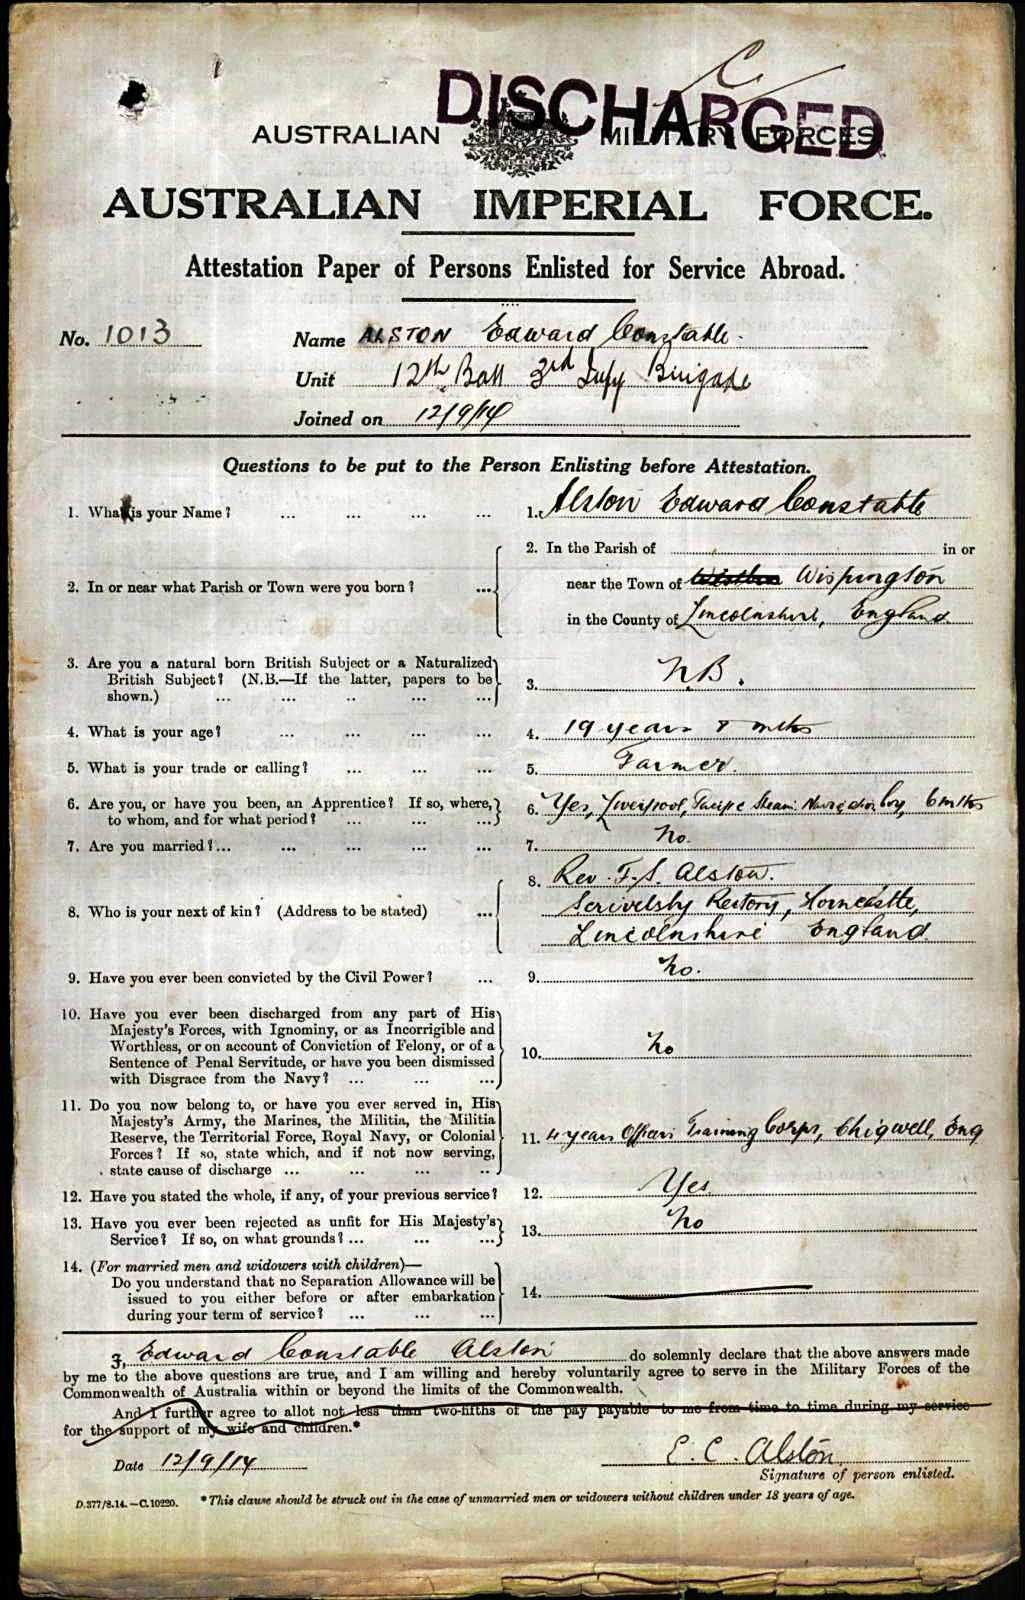 DISCHARGED
AUSTRALIAN MILITARY FORCES.
AUSTRALIAN IMPERIAL FORCE.
Attestation Paper of Persons Enlisted for Service Abroad.
No. 1013
Name ALSTON Edward Constable.
Unit 12th Batt 3rd Infy Brigade
Joined on 12/9/14
Questions to be put to the Person Enlisting before Attestation.
1. What is your Name? ... ... ... ... 1. Alston Edward Constable
2. In or near what Parish or Town were you born? ...
2. In the Parish of in or
near the Town of Wispington
in the County of Lincolnshire, England
3. Are you a natural born British Subject or a Naturalized
British Subject? (N.B.—If the latter, papers to be
shown.) ... ... .. ... ...
3. N.B.
4. What is your age? ... ... ... ... 4. 19 years 8 mths
5. What is your trade or calling? ... ... ... 5. Farmer.
6. Are you, or have you been, an Apprentice? If so, where,
to whom, and for what period? ... ... ...
6. Yes, Liverpool, Pacific Steam Navigation Coy, 6 mths
7. Are you married?... ... ... ... ... 7. No.
8. Who is your next of kin? (Address to be stated) ...
8. Rev. F. S. Alston.
Scrivelsby Rectory, Horncastle,
Lincolnshire England.
9. Have you ever been convicted by the Civil Power? ... 9. No.
10. Have you ever been discharged from any part of His
Majesty's Forces, with Ignominy, or as Incorrigible and
Worthless, or on account of Conviction of Felony, or of a
Sentence of Penal Servitude, or have you been dismissed
with Disgrace from the Navy? ... ... ...
10. No
11. Do you now belong to, or have you ever served in, His
Majesty's Army, the Marines, the Militia, the Militia
Reserve, the Territorial Force, Royal Navy, or Colonial
Forces? If so, state which, and if not now serving,
state cause of discharge ... ... ... ..
11. 4 years Officers Training Corps, Chigwell, Eng
12. Have you stated the whole, if any, of your previous service? 12. Yes
13. Have you ever been rejected as unfit for His Majesty's
Service? If so, on what grounds? ... ... ...
13. No
14. (For married men and widowers with children)—
Do you understand that no Separation Allowance will be
issued to you either before or after embarkation
during your term of service? ... ... ...
14.
I, Edward Constable Alston do solemnly declare that the above answers made
by me to the above questions are true, and I am willing and hereby voluntarily agree to serve in the Military Forces of the
Commonwealth of Australia within or beyond the limits of the Commonwealth.
And I further agree to allot not less than two-fifths of the pay payable to me from time to time during my service
for the support of my wife and children.*
Date 12/9/14
E. C. Alston
Signature of person enlisted.
D.377/8.14.—C.10220. *This clause should be struck out in the case of unmarried men or widowers without children under 18 years of age.